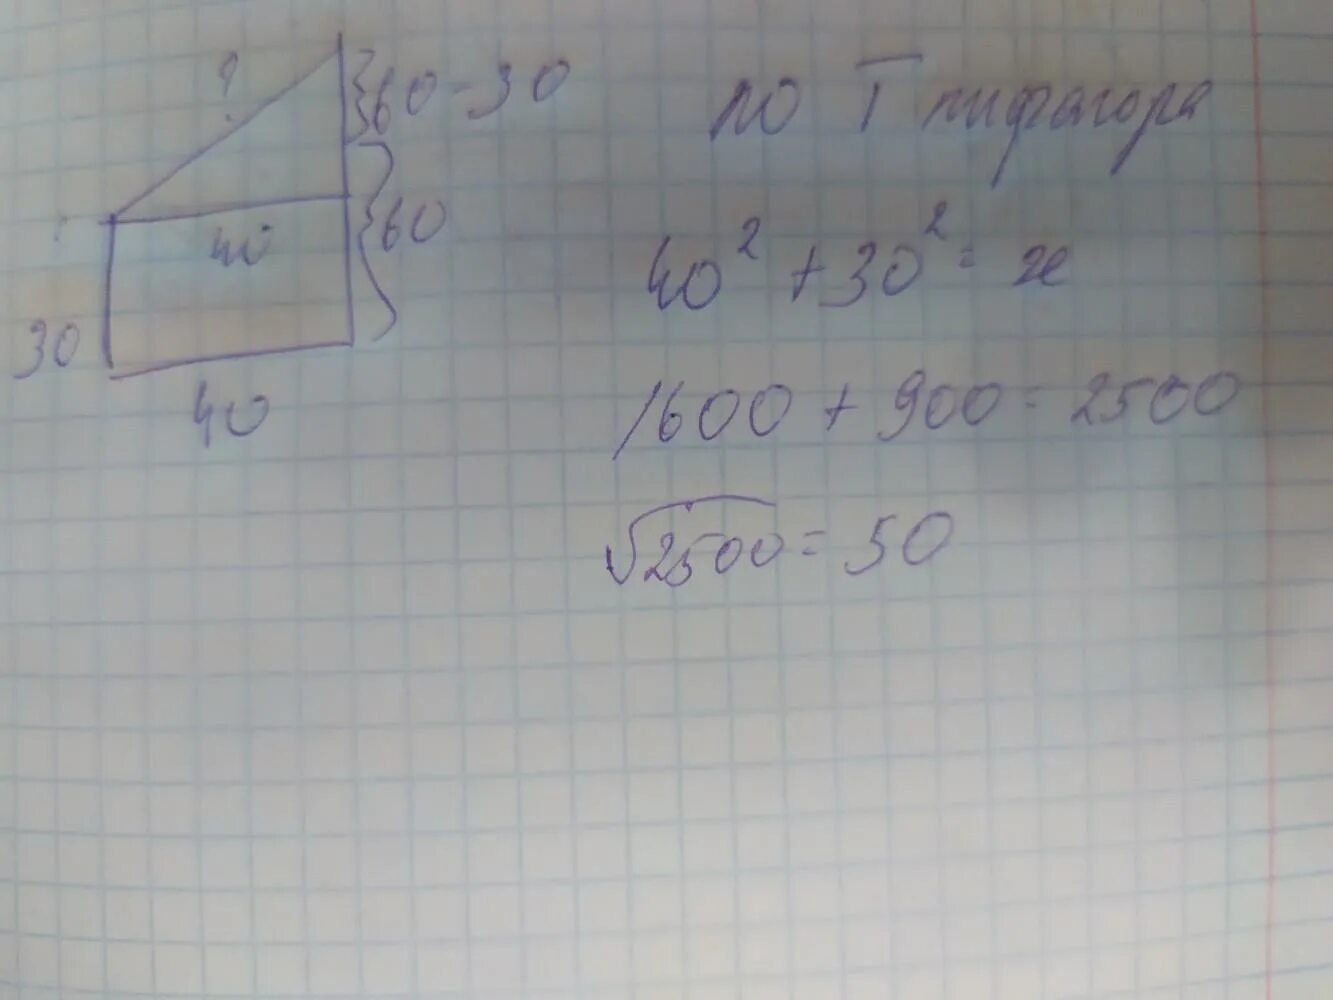 ?
60-30
40
60
30
40
по Т пифагора
40² + 30² = x
1600 + 900 = 2500
√2500 = 50